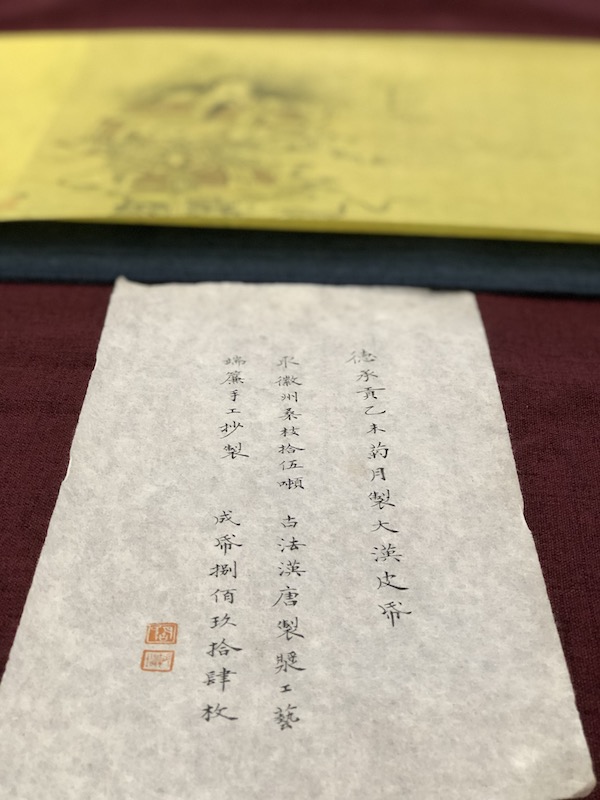 德承貢乙未菊月製大漢皮帋
永徽州桑枝拾伍噸 古法漢唐製漿工藝
端簾手工抄製 成帋捌佰玖拾肆枚